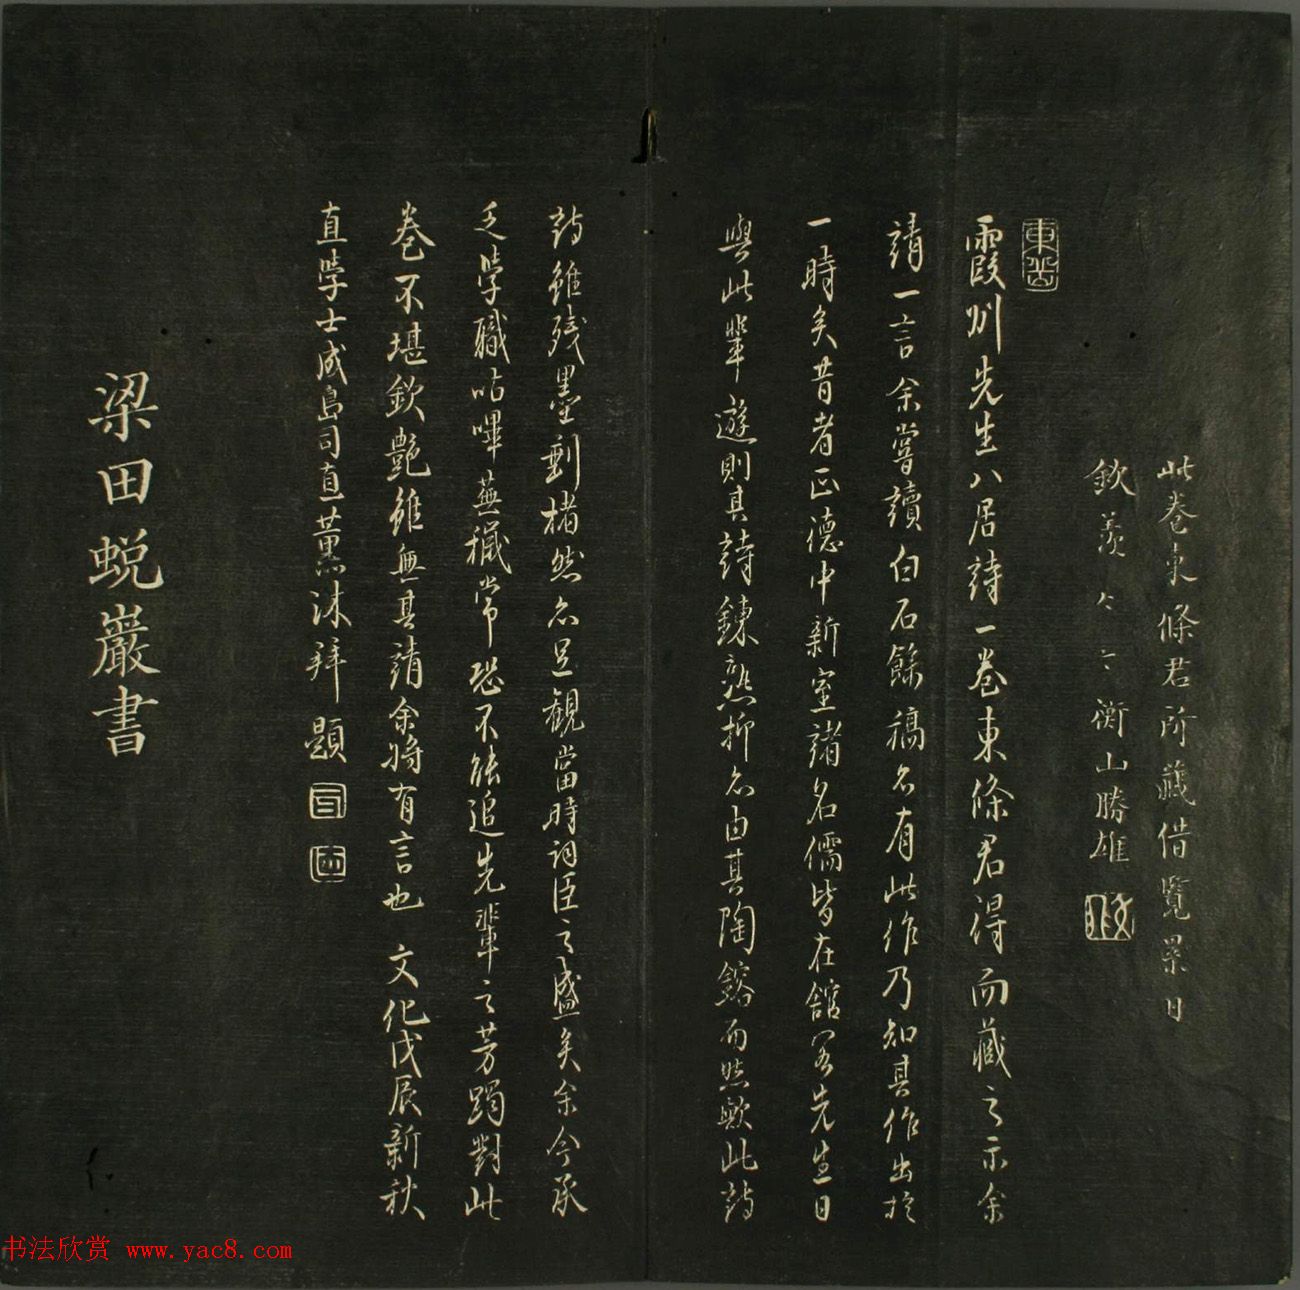 此卷東條君所藏借覽累日
欽羨々々衡山勝雄
東岳
霞洲先生八居詩一卷東條君得而藏之示余
請一言余嘗讀白石餘稿亦有此作乃知其作出於
一時矣昔者正德中新室諸名儒皆在館閣先生日
與此輩遊則其詩鍊熟抑亦由其陶鎔而然歟此詩
詩雖殘墨剩楮然亦足觀當時詞臣之盛矣余今承
乏學職呫嗶蕪穢常恐不能追先輩之芳躅對此
卷不堪欽艷雖無其請余將有言也 文化戊辰新秋
直學士成島司直薰沐拜題
梁田蛻巖書
书法欣赏 www.yac8.com